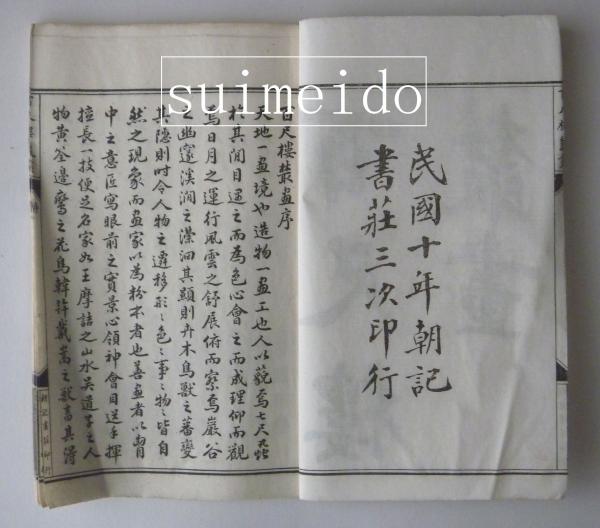 suimeido
民國十年朝記
書莊三次印行
百尺樓叢畫序
天地一畫境也造物一畫工也人以藐焉七尺
於其間目遇之而為色心會之而成理仰而觀
焉日月之運行風雲之舒展俯而察焉巖谷
之幽邃溪澗之瀠洄其顯則卉木鳥獸之蕃變
其隱則時令人物之遷移形形色色事事物物皆自
然之現象而畫家以為粉本者也善畫者以胸
中之意匠寫眼前之實景心領神會目送手揮
擅長一技便足名家如王摩詰之山水吳道子之人
物黃筌邊鸞之花鳥韓幹戴嵩之獸畜其薄
朝記書莊印行